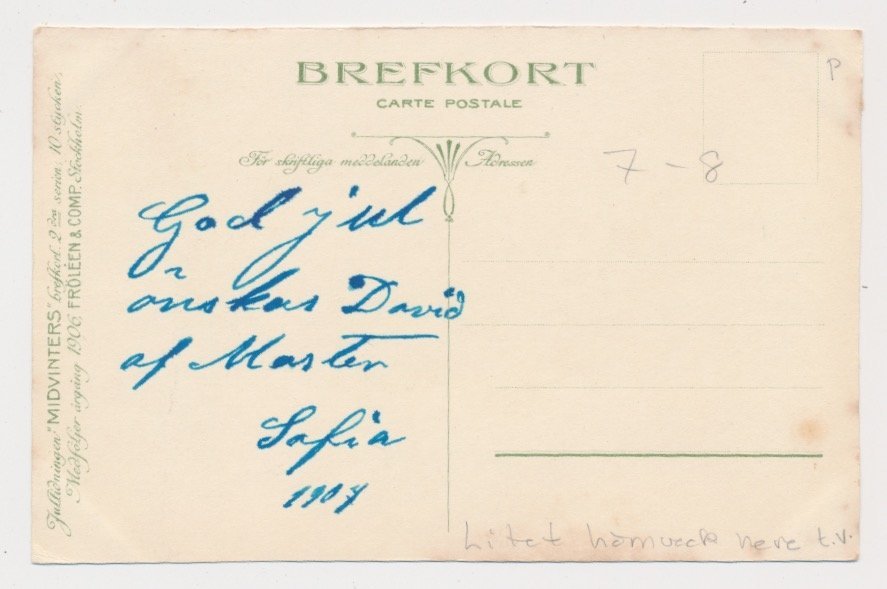 BREFKORT
CARTE POSTALE
För skriftliga meddelanden
Adressen
P
7-8
God jul
önskas David
af Moster
Sofia
1907
Jultidningen "MIDVINTERS" brefkort. 2 dra serien: 10 stycken.
Medföljer årgång 1906. FRÖLÉEN & COMP. Stockholm.
Litet hörnveck nere t.v.